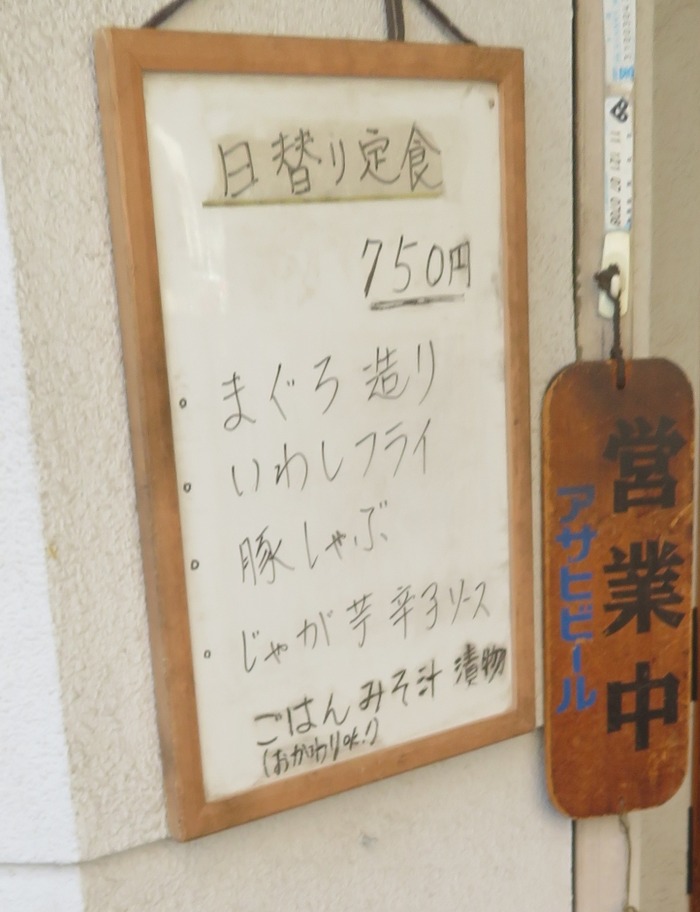 日替り定食
750円
まぐろ造り
いわしフライ
豚しゃぶ
じゃが芋辛子ソース
ごはん みそ汁 漬物
(おかわりOK!)
営業中
アサヒビール